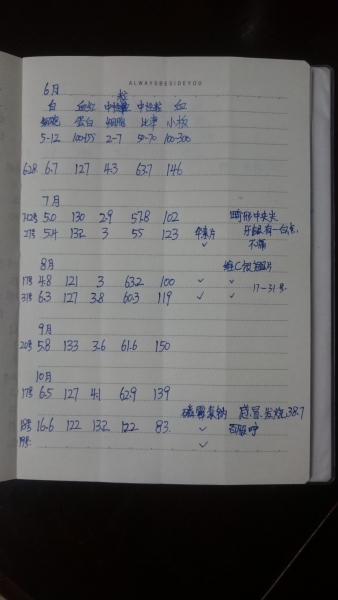 ALWAYSBESIDEYOU
6月
白 血红 中性粒 中性粒 血
细胞 蛋白 细胞 比率 小板
5-12 100-155 2-7 50-70 100-300
628 6.7 127 4.3 63.7 146
7月
7.12号 5.0 130 2.9 57.8 102 畸形中央尖
27号 5.4 132 3 55 123 牙龈有一白包,
✓ 不痛
8月 维C银翘片
17号 4.8 121 3 63.2 100 ✓ ✓ 17-31号
31号 6.3 127 3.8 60.3 119 ✓ ✓
9月
20号 5.8 133 3.6 61.6 150
10月
17号 6.5 127 4.1 62.9 139
磷霉素钠 感冒.发烧38.7
18号 16.6 122 13.2 83. ✓
19号 ✓